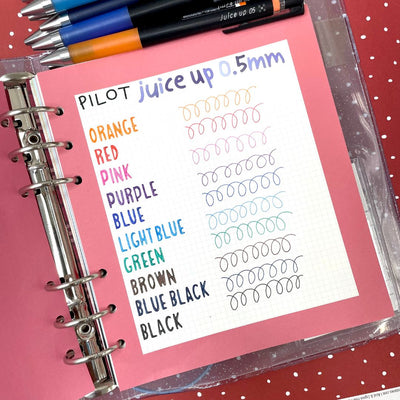 juice up 05
PILOT juice up 0.5mm
ORANGE
RED
PINK
PURPLE
BLUE
LIGHT BLUE
GREEN
BROWN
BLUE BLACK
BLACK